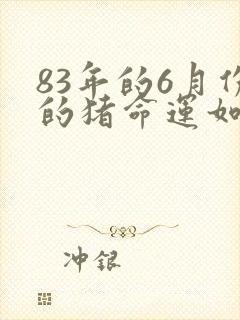 83年的6月份
的猪命运如
冲银